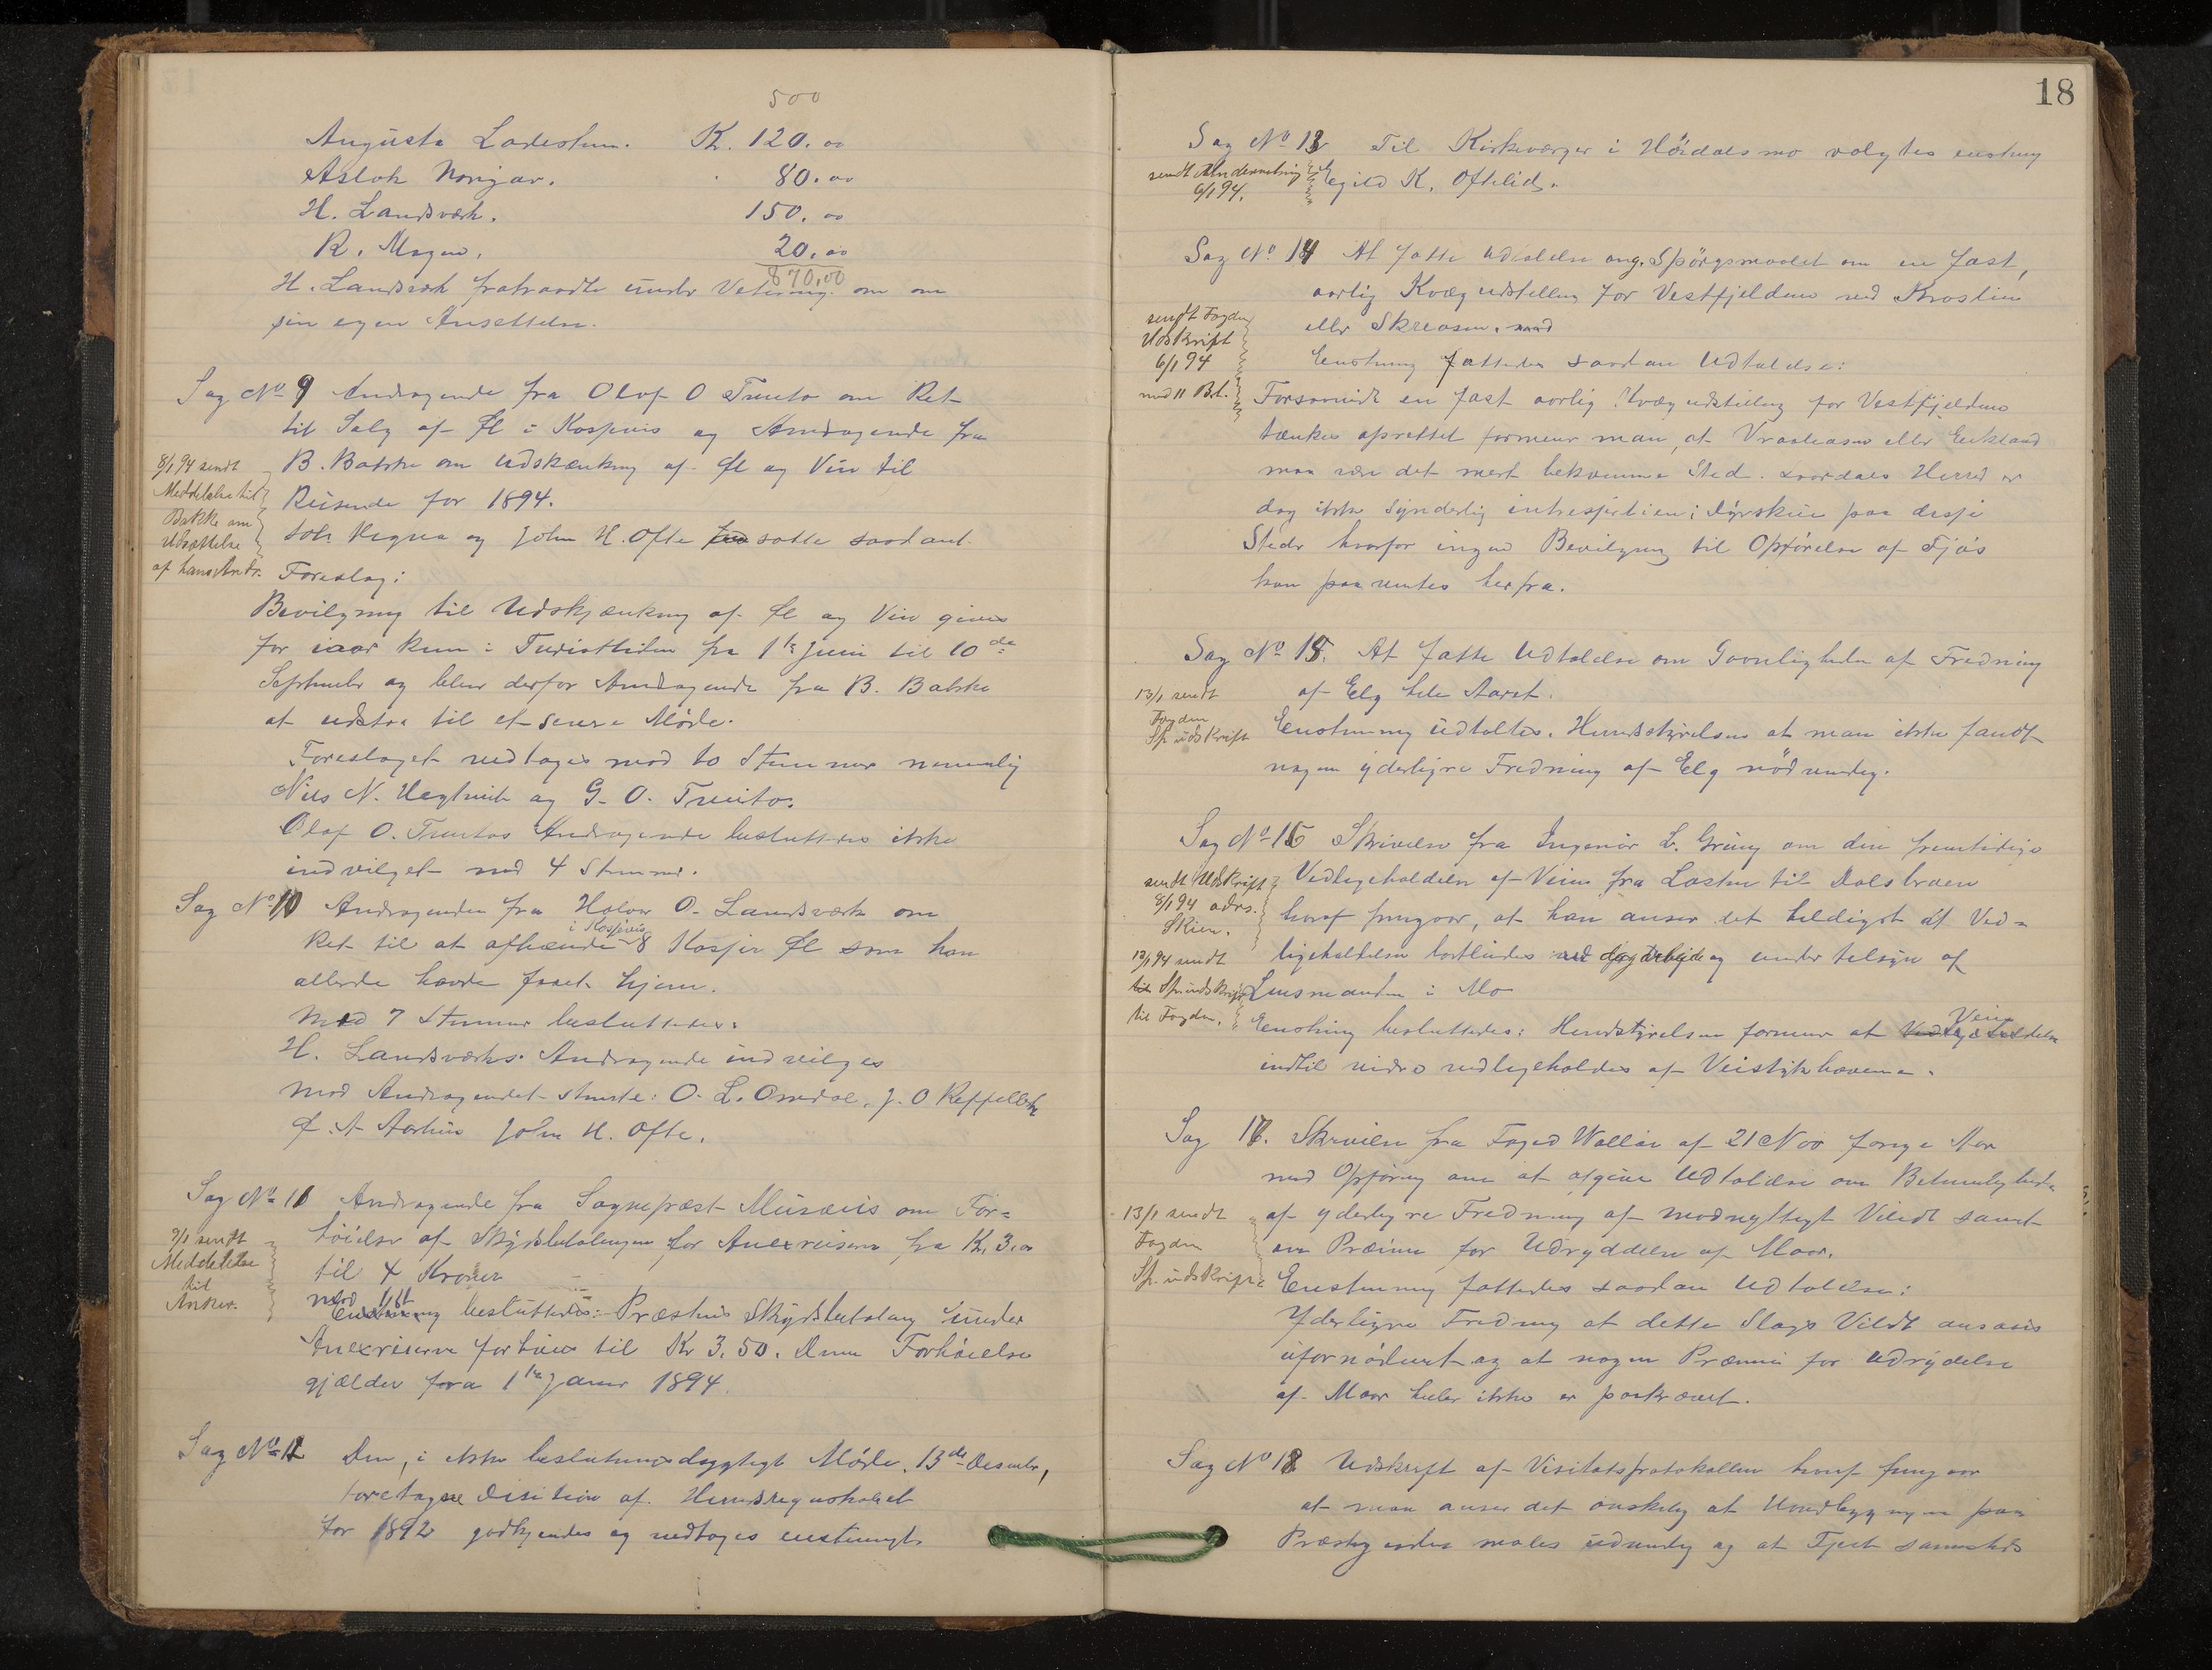 500
Augusta Ladestuen. Kr. 120.00
Aslak Norigar. 80.00
H. Landsværk. 150.00
R. Mogen. 20.00
870,00
H. Landsværk fratraadte under Votering om
sin egen Ansettelse.
Sag No 9 Andragende fra Olaf O Tveito om Ret
til Salg af Øl i Kasjevis og Andragende fra
8/1 94 sendt
Meddelelse til
Bakke om
Udsættelse
af hans Andr.
B. Bakke om Udskænkning af Øl og Vin til
Reisende for 1894.
og John H. Ofte satte saadant
Foreslag:
Bevilgning til Udskjænkning af Øl og Vin gives
for iaar kun i Turisttiden fra 1ste Juni til 10de
September og blev derfor Andragende fra B. Bakke
at udstaa til et senere Møde.
Foreslaget vedtages mod to Stemmer nemmelig
Nils N. og G. O. Tveito.
Olaf O. Tveitos Andragende besluttedes ikke
indvilget med 4 Stemmer.
Sag No 10 Andragende fra Halvor O. Landsværk om
i Kasjevis
Ret til at afhænde 8 Kasjer Øl som han
allerede havde faaet hjem.
Med 7 Stemmer besluttedes:
H. Landsværks Andragende indvilges
mod Andragendet stemte: O. L. Omdal, J. O
Ø. A Aarhus John H. Ofte.
Sag No 11 Andragende fra Sognepræst Musæus om For-
9/1 sendt
Meddelelse
til
Anker.
høielse af Skydsbetalingen for Anexreisen fra Kr. 3.00
til 4 Kroner
med
besluttedes: Præstens Skydsbetaling under
Anexreiserne forhøies til Kr 3.50. Denne Forhøielse
gjælder fra 1ste Januar 1894.
Sag No 12 Den, i ikke beslutningsdygtigt Møde, 13de Desember,
foretagne Desition af Herredsregnskabet
for 1892 godkjendes og vedtages enstemmigt.
18
Sag No 13 Til Kirkeværger i Høidalsmo valgtes enstemmig
sendt Underretning
6/1 94.
Egild K. Oftelid.
Sag No 14 At fatte Udtalelse ang. Spørgsmaalet om en fast,
aarlig Kvægudstilling for Vestfjeldene ved Kroslien
sendt Fogden
Udskrift
6/1 94
med 11 Bil.
eller Skreosen.
Enstemmig fattedes saadan Udtalelse:
Forsaavidt en fast aarlig Kvægudstilling for Vestfjeldene
tænkes oprettet formener man, at Vraaliosen eller
maa være det mest bekvemme Sted. Herred er
dog ikke synderlig i Dyrskue paa desse
Steder hvorfor ingen Bevilgning til Opførelse af Fjøs
kan paaventes herfra.
Sag No 15. At fatte Udtalelse om Gavnligheden af Fredning
af Elg hele Aaret.
13/1 sendt
Fogden
Sp. udskrift
Enstemmig udtaltes. Herredsstyrelsen at man ikke fandt
nogen yderligere Fredning af Elg nødvendig.
Sag No 16 Skrivelse fra Ingeniør L. Gring om den fremtidige
sendt Udskrift
8/1 94 adrs.
Skien.
Vedligeholdelse af Veien fra Lasten til Dalsbroen
hvoraf fremgaar, at han anser det heldigst at Ved-
12/1 94 sendt
Sp. udskrift
til Fogden.
ligeholdelsen bortlindes og under tilsyn af
Lensmanden i Mo
Enstemmig besluttedes: Herredstyrelsen formener at Veien
indtil videre vedligeholdes af Veistykhaverne.
Sag 17. Skrivelse fra Foged Wallöe af 21 Nov forrige Aar
med Opføring om at afgive Udtalelse om Betimeligheden
13/1 sendt
Fogden
Sp. udskrift
af yderligere Fredning af modnyttigt Vildt samt
om Præmie for Udryddelse af Maar.
Enstemmig fattedes saadan Udtalelse:
Yderligere Fredning at dette Slags Vildt ansees
ufornødent og at nogen Præmie for Udrydelse
af Maar heller ikke er paakrævet.
Sag No 18 Udskrift af Visitatsprotokollen hvoraf fremgaar
at man anser det ønskelig at Hovedbygnigen paa
Præstegaarden males udvendig og at Fjert sammesteds